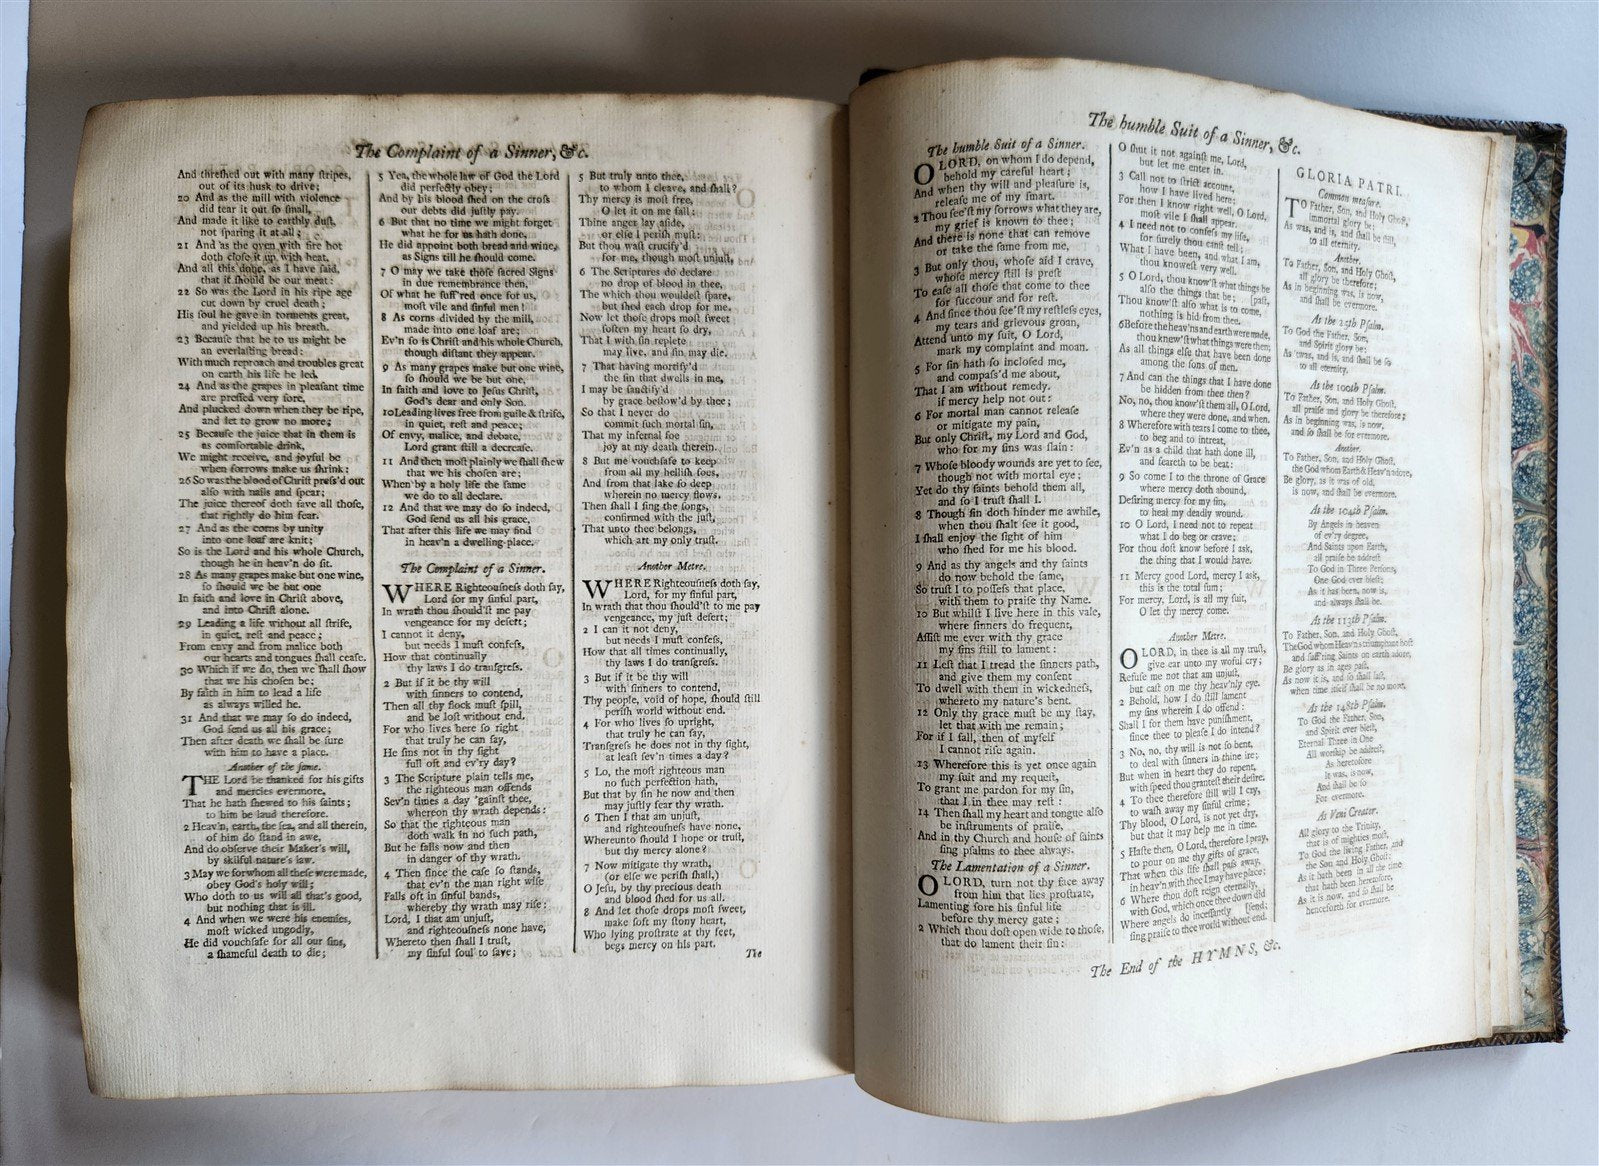 The Complaint of a Sinner, &c.
And threſhed out with many ſtripes,
out of its husk to drive;
20 And as the mill with violence
did tear it out ſo ſmall,
And made it like to earthly duſt,
not ſparing it at all;
21 And as the oven with fire hot
doth cloſe it up with heat,
And all this done, as I have ſaid,
that it ſhould be our meat:
22 So was the Lord in his ripe age
cut down by cruel death;
His ſoul he gave in torments great,
and yielded up his breath.
23 Becauſe that he to us might be
an everlaſting bread:
With much reproach and troubles great
on earth his life he led.
24 And as the grapes in pleaſant time
are preſſed very ſore,
And plucked down when they be ripe,
and let to grow no more;
25 Becauſe the juice that in them is
as comfortable drink,
We might receive, and joyful be
when ſorrows make us ſhrink:
26 So was the blood of Chriſt preſs'd out
alſo with nails and ſpear;
The juice thereof doth ſave all thoſe,
that rightly do him fear.
27 And as the corns by unity
into one loaf are knit;
So is the Lord and his whole Church,
though he in heav'n do ſit.
28 As many grapes make but one wine,
ſo ſhould we be but one
In faith and love in Chriſt above,
and into Chriſt alone.
29 Leading a life without all ſtrife,
in quiet, reſt and peace;
From envy and from malice both
our hearts and tongues ſhall ceaſe.
30 Which if we do, then we ſhall ſhow
that we his choſen be;
By faith in him to lead a life
as always willed he.
31 And that we may ſo do indeed,
God ſend us all his grace;
Then after death we ſhall be ſure
with him to have a place.
Another of the ſame.
THE Lord be thanked for his gifts
and mercies evermore,
That he hath ſhewed to his ſaints;
to him be laud therefore.
2 Heav'n, earth, the ſea, and all therein,
of him do ſtand in awe,
And do obſerve their Maker's will,
by skilful nature's law.
3 May we for whom all theſe were made,
obey God's holy will;
Who doth to us will all that's good,
but nothing that is ill.
4 And when we were his enemies,
moſt wicked ungodly,
He did vouchſafe for all our ſins,
a ſhameful death to die;
5 Yea, the whole law of God the Lord
did perfectly obey;
And by his blood ſhed on the croſs
our debts did juſtly pay.
6 But that no time we might forget
what he for us hath done,
He did appoint both bread and wine,
as Signs till he ſhould come.
7 O may we take thoſe ſacred Signs
in due remembrance then,
Of what he ſuff'red once for us,
moſt vile and ſinful men!
8 As corns divided by the mill,
made into one loaf are:
Ev'n ſo is Chriſt and his whole Church,
though diſtant they appear.
9 As many grapes make but one wine,
ſo ſhould we be but one,
In faith and love to Jeſus Chriſt,
God's dear and only Son.
10 Leading lives free from guile & ſtrife,
in quiet, reſt and peace;
Of envy, malice, and debate,
Lord grant ſtill a decreaſe.
11 And then moſt plainly we ſhall ſhew
that we his choſen are;
When by a holy life the ſame
we do to all declare.
12 And that we may do ſo indeed,
God ſend us all his grace,
That after this life we may find
in heav'n a dwelling-place.
The Complaint of a Sinner.
WHERE Righteouſneſs doth ſay,
Lord for my ſinful part,
In wrath thou ſhould'ſt me pay
vengeance for my deſert;
I cannot it deny,
but needs I muſt confeſs,
How that continually
thy laws I do tranſgreſs.
2 But if it be thy will
with ſinners to contend,
Then all thy flock muſt ſpill,
and be loſt without end.
For who lives here ſo right
that truly he can ſay,
He ſins not in thy ſight
full oft and ev'ry day?
3 The Scripture plain tells me,
the righteous man offends
Sev'n times a day 'gainſt thee,
whereon thy wrath depends:
So that the righteous man
doth walk in no ſuch path,
But he falls now and then
in danger of thy wrath.
4 Then ſince the caſe ſo ſtands,
that ev'n the man right wiſe
Falls oft in ſinful bands,
whereby thy wrath may riſe:
Lord, I that am unjuſt,
and righteouſneſs none have,
Whereto then ſhall I truſt,
my ſinful ſoul to ſave;
5 But truly unto thee,
to whom I cleave, and ſhall?
Thy mercy is moſt free,
O let it on me fall:
Thine anger lay aſide,
or elſe I periſh muſt:
But thou waſt crucify'd
for me, though moſt unjuſt,
6 The Scriptures do declare
no drop of blood in thee,
The which thou wouldeſt ſpare,
but ſhed each drop for me.
Now let thoſe drops moſt ſweet
ſoften my heart ſo dry,
That I with ſin replete
may live, and ſin may die.
7 That having mortify'd
the ſin that dwells in me,
I may be ſanctify'd
by grace beſtow'd by thee;
So that I never do
commit ſuch mortal ſin,
That my infernal foe
joy at my death therein.
8 But me vouchſafe to keep
from all my helliſh foes,
And from that lake ſo deep
wherein no mercy flows.
Then ſhall I ſing the ſongs,
confirmed with the juſt,
That unto thee belongs,
which art my only truſt.
Another Metre.
WHERE Righteouſneſs doth ſay,
Lord, for my ſinful part,
In wrath that thou ſhould'ſt to me pay
vengeance, my juſt deſert;
2 I can it not deny,
but needs I muſt confeſs,
How that all times continually,
thy laws I do tranſgreſs.
3 But if it be thy will
with ſinners to contend,
Thy people, void of hope, ſhould ſtill
periſh world without end.
4 For who lives ſo upright,
that truly he can ſay,
Tranſgreſs he does not in thy ſight,
at leaſt ſev'n times a day?
5 Lo, the moſt righteous man
no ſuch perfection hath,
But that by ſin he now and then
may juſtly fear thy wrath.
6 Then I that am unjuſt,
and righteouſneſs have none,
Whereunto ſhould I hope or truſt,
but thy mercy alone?
7 Now mitigate thy wrath,
(or elſe we periſh ſhall,)
O Jeſu, by thy precious death
and blood ſhed for us all.
8 And let thoſe drops moſt ſweet,
make ſoft my ſtony heart,
Who lying proſtrate at thy feet,
begs mercy on his part.
The
The humble Suit of a Sinner, &c.
The humble Suit of a Sinner.
O LORD, on whom I do depend,
behold my careful heart;
And when thy will and pleaſure is,
releaſe me of my ſmart.
2 Thou ſee'ſt my ſorrows what they are,
my grief is known to thee;
And there is none that can remove
or take the ſame from me,
3 But only thou, whoſe aid I crave,
whoſe mercy ſtill is preſt
To eaſe all thoſe that come to thee
for ſuccour and for reſt.
4 And ſince thou ſee'ſt my reſtleſs eyes,
my tears and grievous groan,
Attend unto my ſuit, O Lord,
mark my complaint and moan.
5 For ſin hath ſo incloſed me,
and compaſs'd me about,
That I am without remedy.
if mercy help not out:
6 For mortal man cannot releaſe
or mitigate my pain,
But only Chriſt, my Lord and God,
who for my ſins was ſlain:
7 Whoſe bloody wounds are yet to ſee,
though not with mortal eye;
Yet do thy ſaints behold them all,
and ſo I truſt ſhall I.
8 Though ſin doth hinder me awhile,
when thou ſhalt ſee it good,
I ſhall enjoy the ſight of him
who ſhed for me his blood.
9 And as thy angels and thy ſaints
do now behold the ſame,
So truſt I to poſſeſs that place,
with them to praiſe thy Name.
10 But whilſt I live here in this vale,
where ſinners do frequent,
Aſſiſt me ever with thy grace
my ſins ſtill to lament:
11 Leſt that I tread the ſinners path,
and give them my conſent
To dwell with them in wickedneſs,
whereto my nature's bent.
12 Only thy grace muſt be my ſtay,
let that with me remain;
For if I fall, then of myſelf
I cannot riſe again.
13 Wherefore this is yet once again
my ſuit and my requeſt,
To grant me pardon for my ſin,
that I in thee may reſt:
14 Then ſhall my heart and tongue alſo
be inſtruments of praiſe,
And in thy Church and houſe of ſaints
ſing pſalms to thee always.
The Lamentation of a Sinner.
O LORD, turn not thy face away
from him that lies proſtrate,
Lamenting ſore his ſinful life
before thy mercy gate;
2 Which thou doſt open wide to thoſe,
that do lament their ſin:
O ſhut it not againſt me, Lord,
but let me enter in.
3 Call not to ſtrict account,
how I have lived here;
For then I know right well, O Lord,
moſt vile I ſhall appear.
4 I need not to confeſs my life,
for ſurely thou canſt tell;
What I have been, and what I am,
thou knoweſt very well.
5 O Lord, thou know'ſt what things be
alſo the things that be; [paſt,
Thou know'ſt alſo what is to come,
nothing is hid from thee.
6 Before the heav'ns and earth were made,
thou knew'ſt what things were then;
As all things elſe that have been done
among the ſons of men.
7 And can the things that I have done
be hidden from thee then?
No, no, thou know'ſt them all, O Lord,
where they were done, and when.
8 Wherefore with tears I come to thee,
to beg and to intreat,
Ev'n as a child that hath done ill,
and feareth to be beat:
9 So come I to the throne of Grace
where mercy doth abound,
Deſiring mercy for my ſin,
to heal my deadly wound.
10 O Lord, I need not to repeat
what I do beg or crave;
For thou doſt know before I ask,
the thing that I would have.
11 Mercy good Lord, mercy I ask,
this is the total ſum;
For mercy, Lord, is all my ſuit,
O let thy mercy come.
Another Metre.
O LORD, in thee is all my truſt,
give ear unto my woful cry;
Refuſe me not that am unjuſt,
but caſt on me thy heav'nly eye.
2 Behold, how I do ſtill lament
my ſins wherein I do offend:
Shall I for them have puniſhment,
ſince thee to pleaſe I do intend?
3 No, no, thy will is not ſo bent,
to deal with ſinners in thine ire;
But when in heart they do repent,
with ſpeed thou granteſt their deſire.
4 To thee therefore ſtill will I cry,
to waſh away my ſinful crime;
Thy blood, O Lord, is not yet dry,
but that it may help me in time.
5 Haſte then, O Lord, therefore I pray,
to pour on me thy gifts of grace,
That when this life ſhall paſs away,
in heav'n with thee I may have place:
6 Where thou doſt reign eternally,
with God, which once thee down did
Where angels do inceſſantly [ſend;
ſing praiſe to thee world without end.
GLORIA PATRI.
Common meaſure.
TO Father, Son, and Holy Ghoſt,
immortal glory be;
As was, and is, and ſhall be ſtill,
to all eternity.
Another.
To Father, Son, and Holy Ghoſt,
all glory be therefore;
As in beginning was, is now,
and ſhall be evermore.
As the 25th Pſalm.
To God the Father, Son,
and Spirit glory be;
As 'twas, and is, and ſhall be ſo
to all eternity.
As the 100th Pſalm.
To Father, Son, and Holy Ghoſt,
all praiſe and glory be therefore;
As in beginning was, is now,
and ſo ſhall be for evermore.
Another.
To Father, Son, and Holy Ghoſt,
the God whom Earth & Heav'n adore,
Be glory, as it was of old,
is now, and ſhall be evermore.
As the 104th Pſalm.
By Angels in heaven
of ev'ry degree,
And Saints upon Earth,
all praiſe be addreſt
To God in Three Perſons,
One God ever bleſt;
As it has been, now is,
and always ſhall be.
As the 113th Pſalm.
To Father, Son, and Holy Ghoſt,
The God whom Heav'n's triumphant hoſt
and ſuff'ring Saints on earth adore,
Be glory as in ages paſt,
As now it is, and ſo ſhall laſt,
when time itſelf ſhall be no more.
As the 148th Pſalm.
To God the Father, Son,
and Spirit ever bleſt,
Eternal Three in One
All worſhip be addreſt,
As heretofore
It was, is now,
And ſhall be ſo
For evermore.
As Veni Creator.
All glory to the Trinity,
that is of mighties moſt,
To God the living Father, and
the Son and Holy Ghoſt:
As it hath been in all the time
that hath been heretofore,
As it is now, and ſo ſhall be
henceforth for evermore.
The End of the HYMNS, &c.